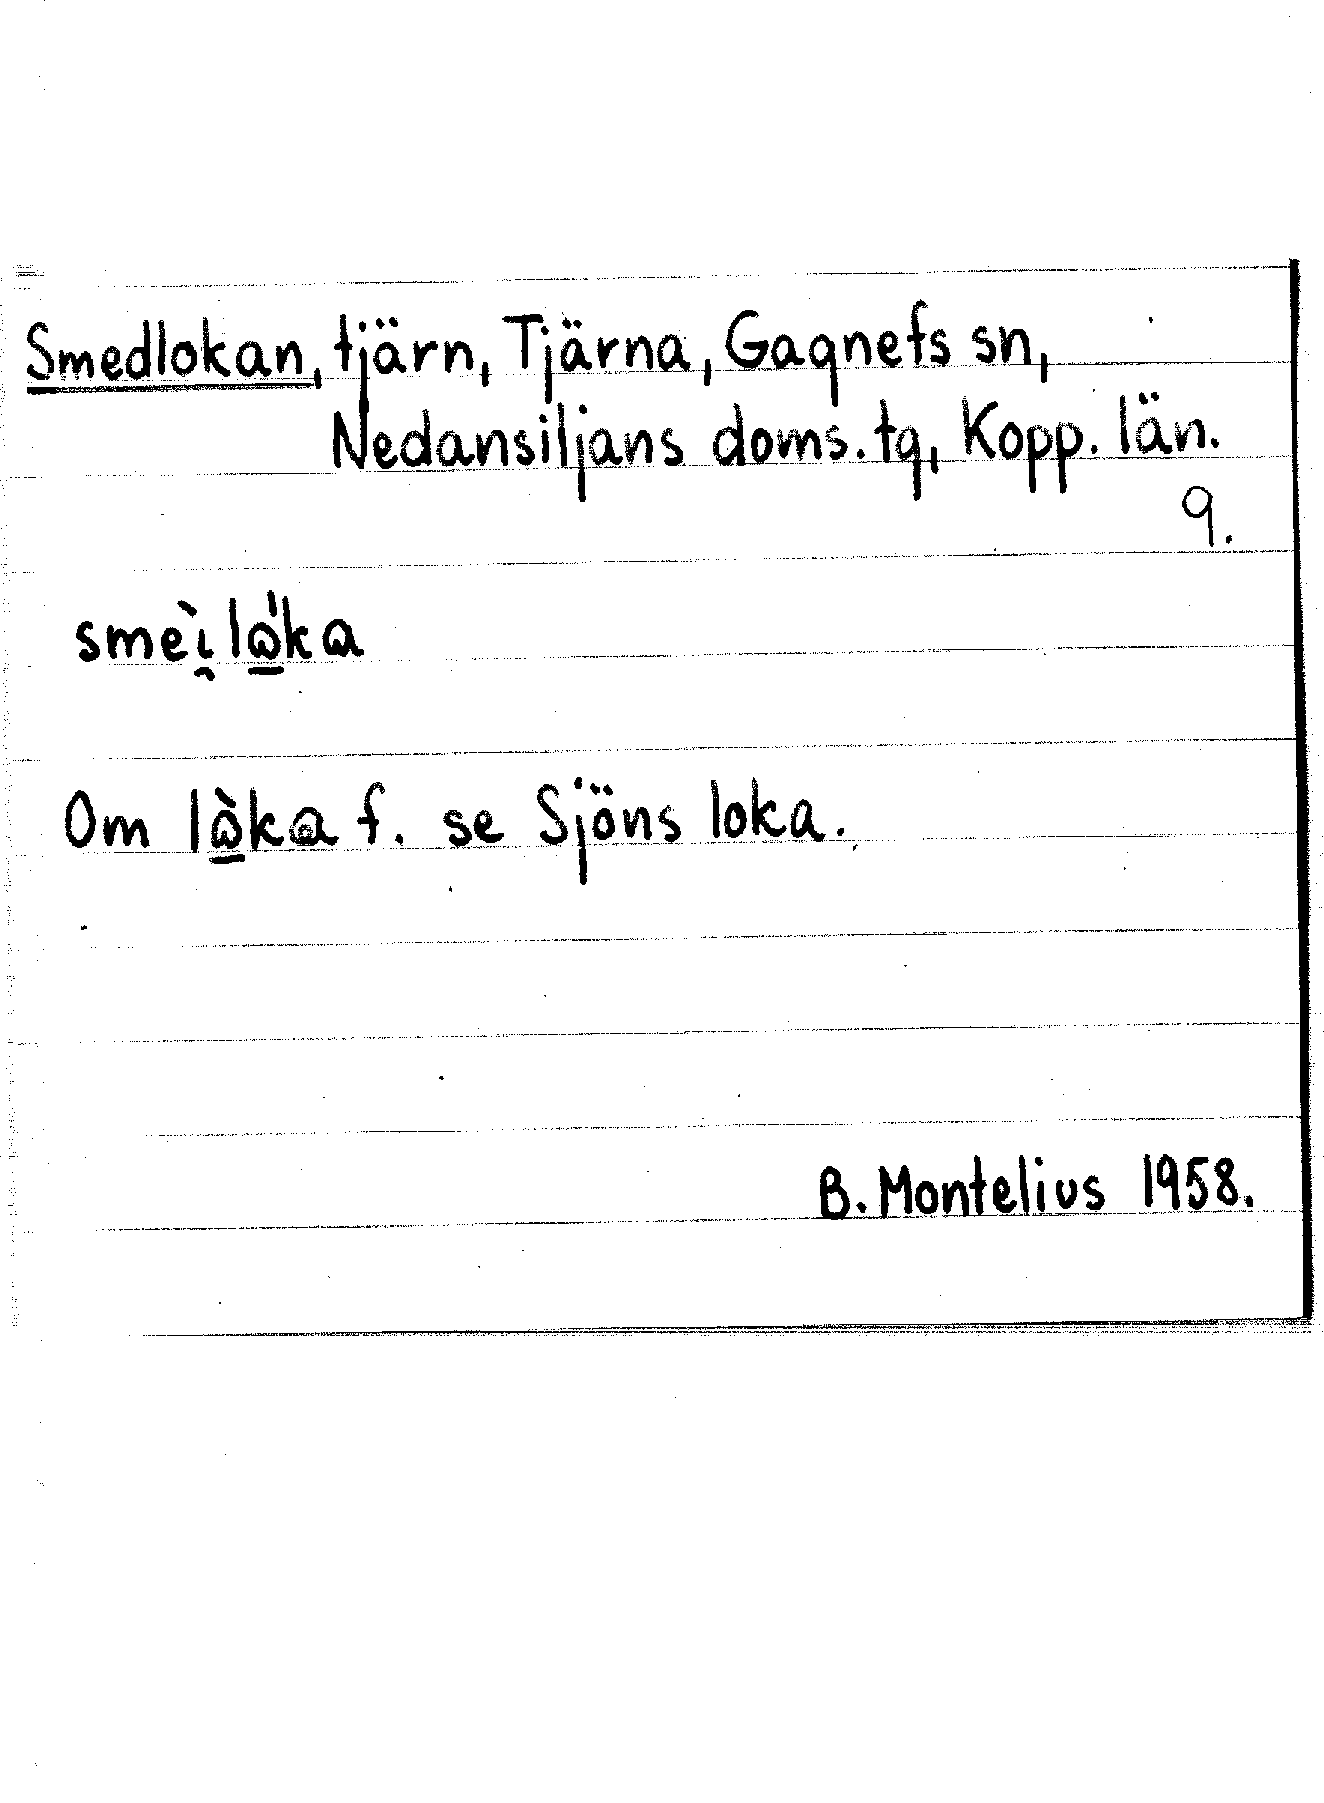 Smedlokan, tjärn, Tjärna, Gagnefs sn,
Nedansiljans doms. tg, Kopp. län.
9.
Om f. se Sjöns loka.
B. Montelius 1958.